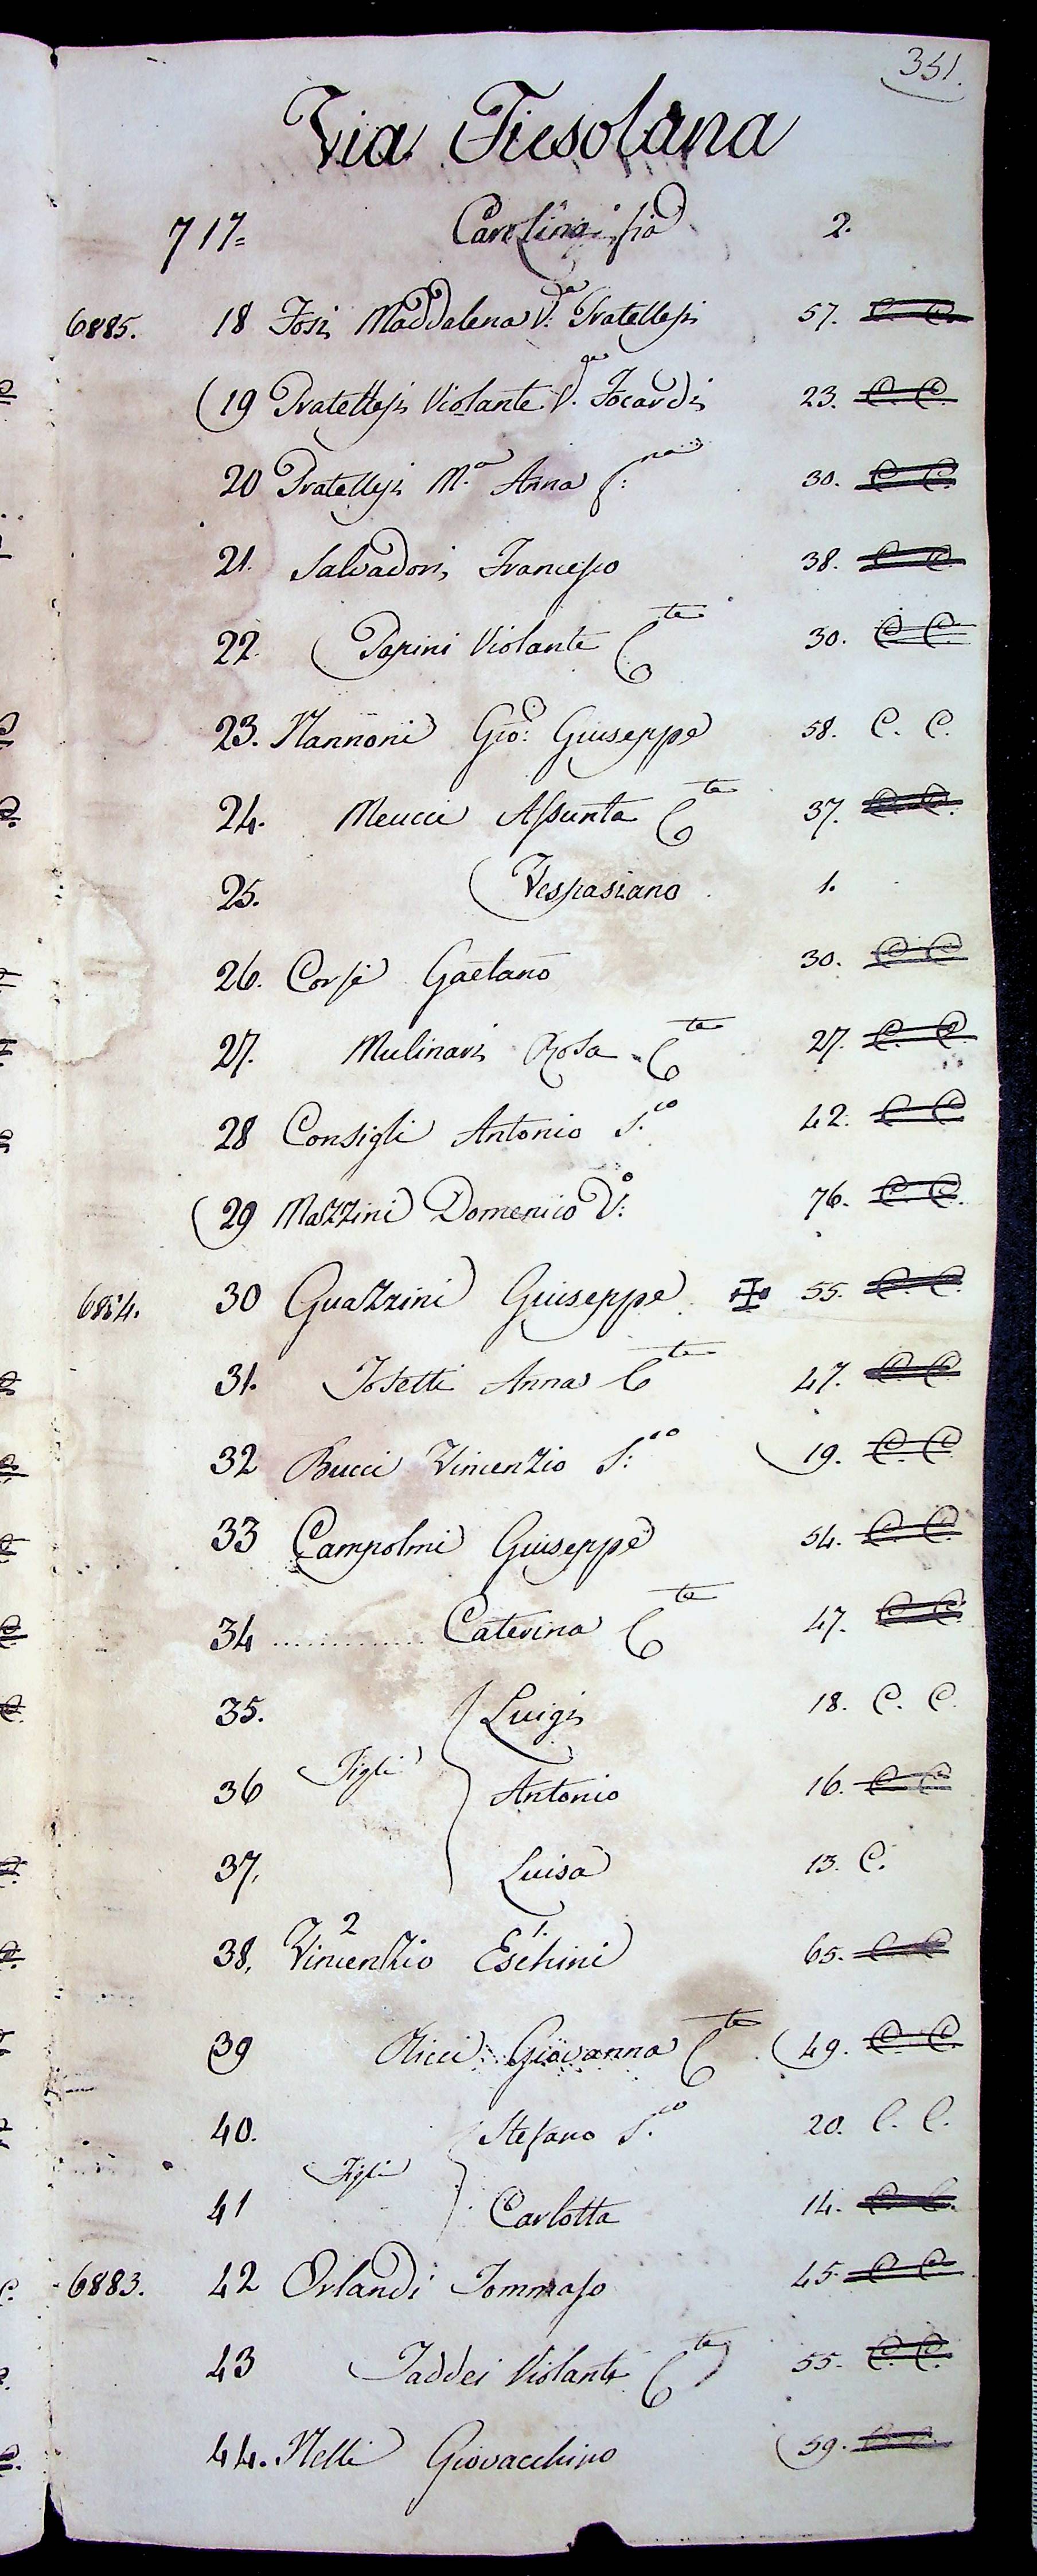 351.
Via Fiesolana
717= Carolina fia 2.
6885. 18 Fosi Maddalena V.da Pratellesi 57. C. C.
(19 Pratellesi Violante V.da Focardi 23. C. C.
20 Pratellesi M.a Anna f:na 30. C C.
21. Salvadori Francesco 38. C C.
22. (Papini Violante C.te 30. C C.
23. Nannoni Gio: Giuseppe 58. C. C.
24. Meucci Assunta C.te 37. C. C.
25. (Vespasiano 1.
26. Corsi Gaetano 30. C C
27. Mulinari Rosa C.te 27. C. C.
28 Consigli Antonio S.lo 42. C C
(29 Mazzini Domenico V:o 76. C. C.
6884. 30 Guazzini Giuseppe ✠ 55. C. C.
31. Tosetti Anna C.te 47. C. C
32 Bucci Vincenzio S:lo 19. C. C
33 Campolmi Giuseppe 54. C. C.
34 .............. Caterina C.te 47. C C.
35. Luigi 18. C. C.
36 Figli Antonio 16. C C
37. Luisa 13. C.
38. Vincenzio 2 Eschini 1. 65. C C
39 Ricci Giovanna C.te (49. C. C.
40. Stefano S.lo 20. C. C.
Figli
41 Carlotta 14. C. C.
6883. 42 Orlandi Tommaso 45. C C.
43 Taddei Violante C.te 55. C. C.
44. Nelli Giovacchino (59. C C.